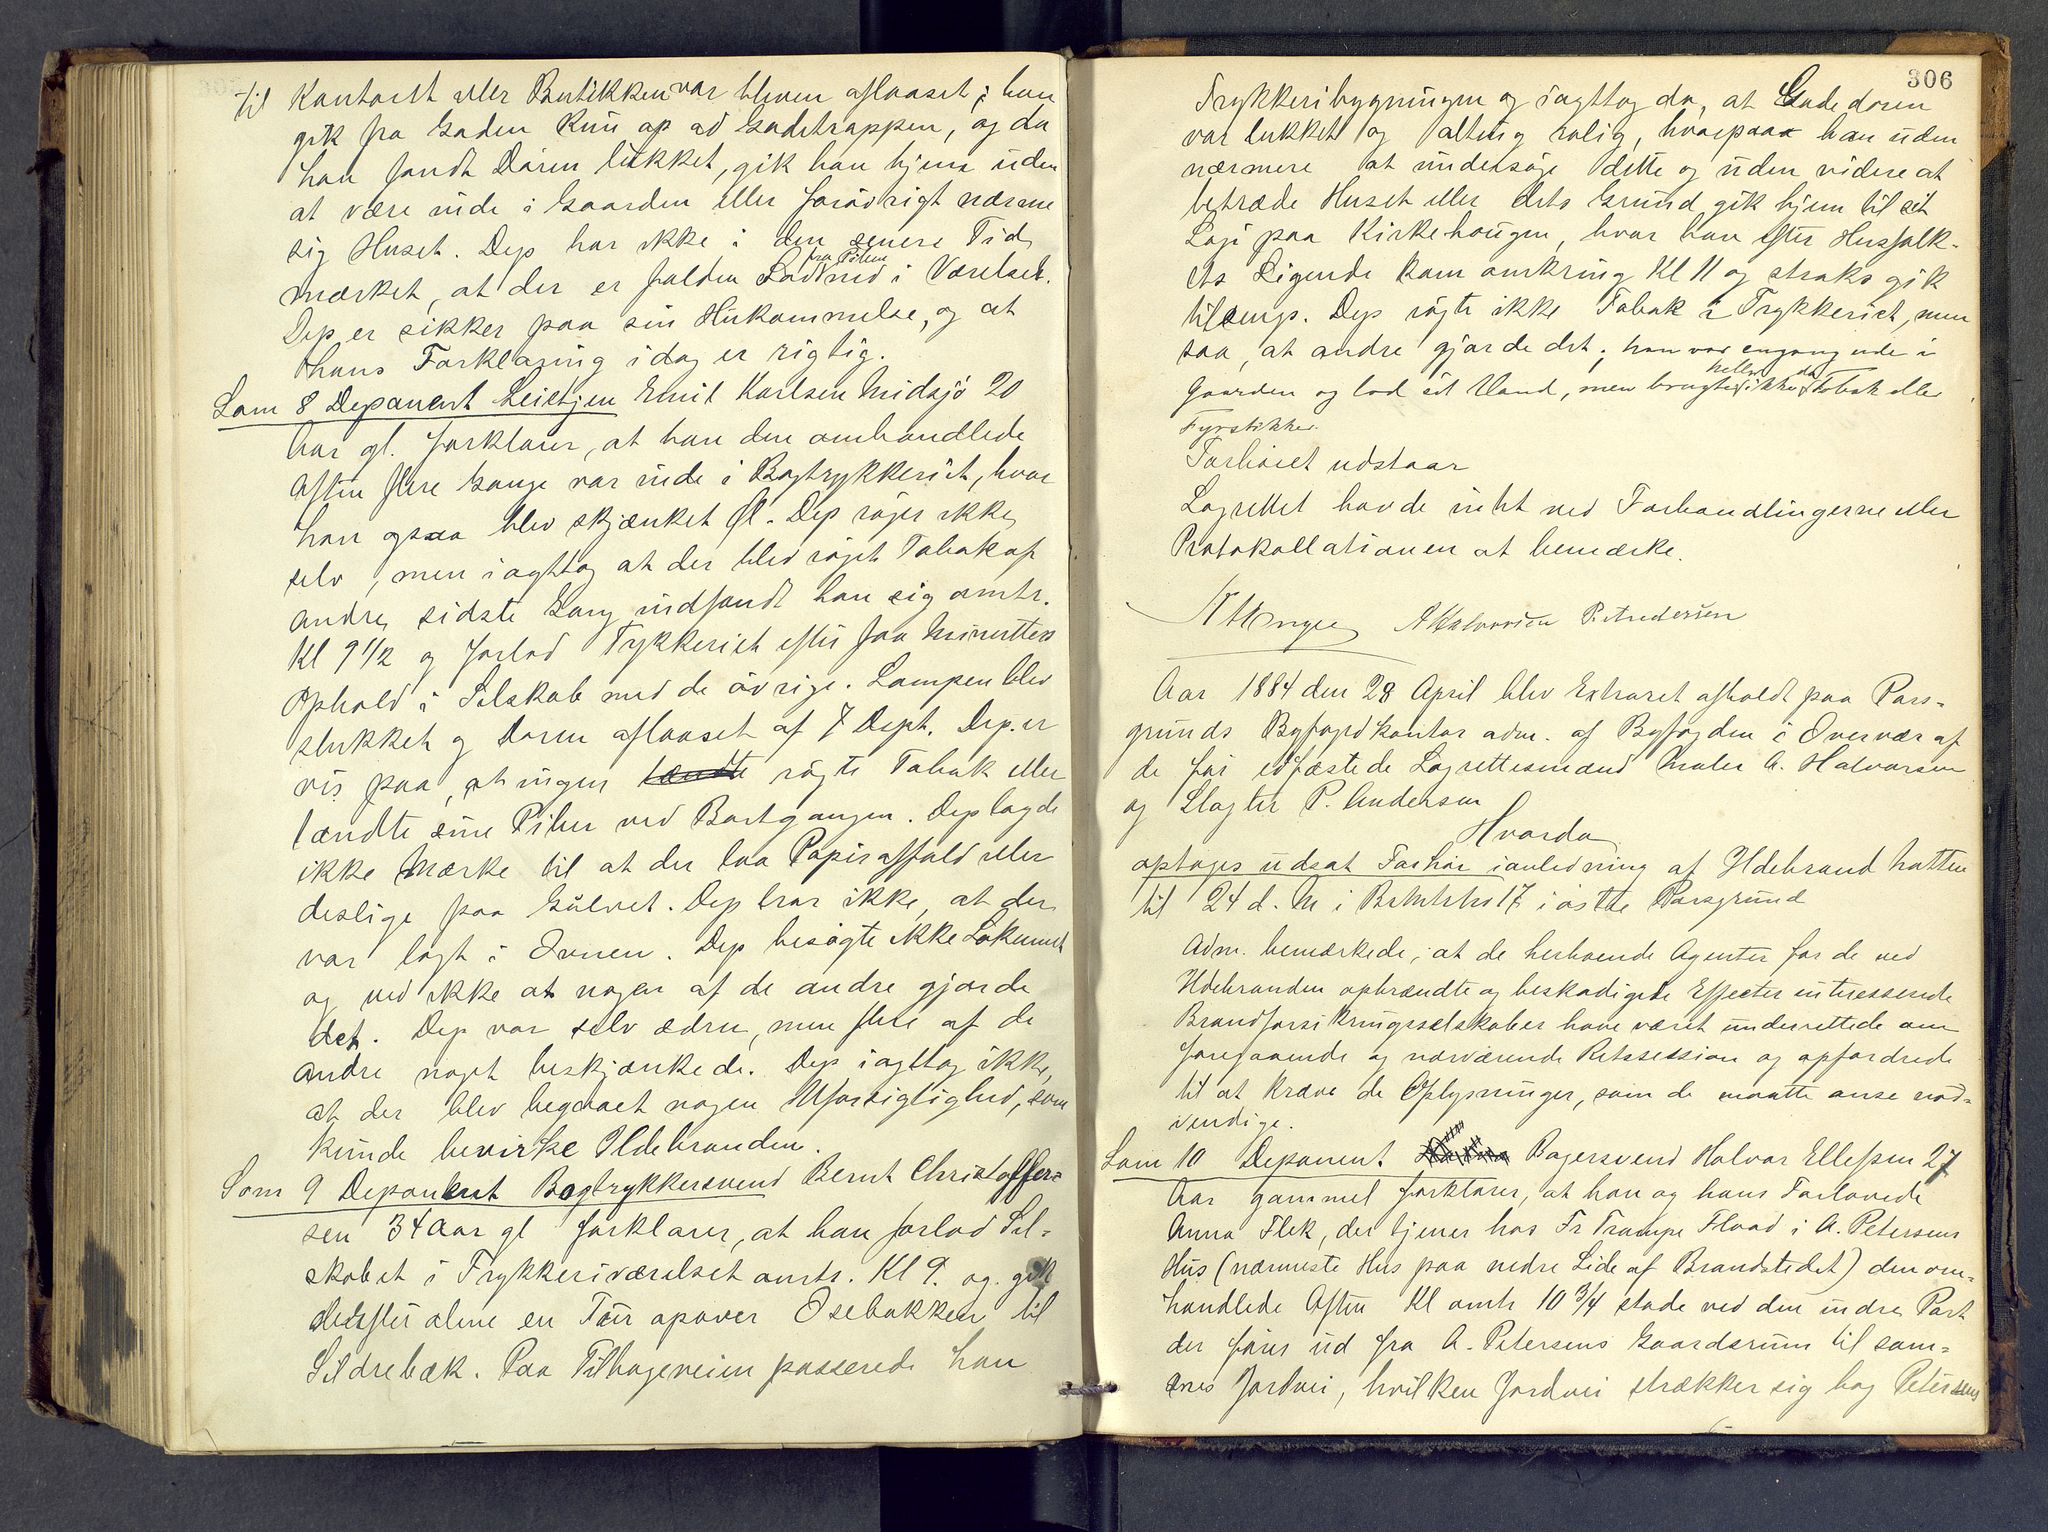 til Kontoret eller Butikken var bleven aflaaset; han
gik fra Gaden kun op ad Gadetrappen, og da
han fandt Døren lukket, gik han hjem uden
at være inde i Gaarden eller forøvrigt nærme
sig Huset. Dep har ikke i den senere Tid
mærket, at der er falden Sod fra Piben ned i Værelset.
Dep er sikker paa sin Hukommelse, og at
hans Forklaring idag er rigtig.
Som 8 Deponent Emil Karlsen Midsjø 20
Aar gl. forklarer, at han den omhandlede
Aften flere Gange var inde i Bogtrykkeriet, hvor
han ogsaa blev skjænket Øl. Dep røger ikke
selv, men iagttog at der blev røget Tobak af
andre, sidste Gang indfandt han sig omtr.
Kl 9 1/2 og forlod Trykkeriet efter faa Minutters
Ophold i Selskab med de øvrige. Lampen blev
slukket og Døren aflaaset af 7 Dept. Dep. er
vis paa, at ingen tændte røgte Tobak eller
tændte sine Piber ved Bortgangen. Dep lagde
ikke Mærke til at der laa Papiraffald eller
deslige paa Gulvet. Dep tror ikke, at der
var lagt i Ovnen. Dep besøgte ikke Lokummet
og ved ikke at nogen af de andre gjorde
det. Dep var selv ædru, men flere af de
andre noget beskjænkede. Dep iagttog ikke,
at der blev begaaet nogen Uforsigtighed, som
kunde bevirke Ildebranden.
Som 9 Deponent Bogtrykkersvend Bernt Christoffer-
sen 34 Aar gl forklarer, at han forlod Sel-
skabet i Trykkeriværelset omtr. Kl 9. og gik
derefter alene en Tur opover Osebakken til
Sildrebæk. Paa Tilbageveien passerede han
306
Trykkeribygningen og iagttog da, at Gadedøren
var lukket og alting rolig, hvorpaa han uden
nærmere at undersøge dette og uden videre at
betræde Huset eller dets Grund gik hjem til sit
Logi paa Kirkehougen, hvor han efter Husfolk-
ets Sigende kom omkring Kl 11 og straks gik
tilsengs. Dep røgte ikke Tobak i Trykkeriet, men
saa, at andre gjorde det; han var engang ude i
Gaarden og lod sit Vand, men brugte heller ikke da Tobak eller
Fyrstikker.
Forhøret udstaar
Lagrettet havde intet ved Forhandlingerne eller
Protokollationen at bemærke.
A Halvorsen P. Andersen
Aar 1884 den 28 April blev Extraret afholdt paa Pors-
grunds Byfogdkontor adm. af Byfogden i Overvær af
de før edfæstede Lagrettesmænd Maler A. Halvorsen
og Slagter P. Andersen
Hvorda
optoges udsat Forhør ianledning af Ildebrand Natten
til 24 d. M i 17 i østre Porsgrund
Adm. bemærkede, at de herboende Agenter for de ved
Ildebranden opbrændte og beskadigede Effecter interesserede
Brandforsikringsselskaber have været underrettede om
foregaaende og nærværende Retssession og opfordrede
til at kræve de Oplysninger, som de maatte anse nød-
vendige.
Som 10 Deponent Bagersvend Halvor Ellefsen 27
Aar gammel forklarer, at han og hans Forlovede
Anna Flek, der tjener hos Fr Trampe Flood i A. Petersens
Hus (nærmeste Hus paa nedre Side af Brandstedet) den om-
handlede Aften Kl omtr 10 3/4 stode ved den indre Port
der fører ud fra A. Petersens Gaardsrum til sam-
mes Jordvei, hvilken Jordvei strækker sig bag Petersens